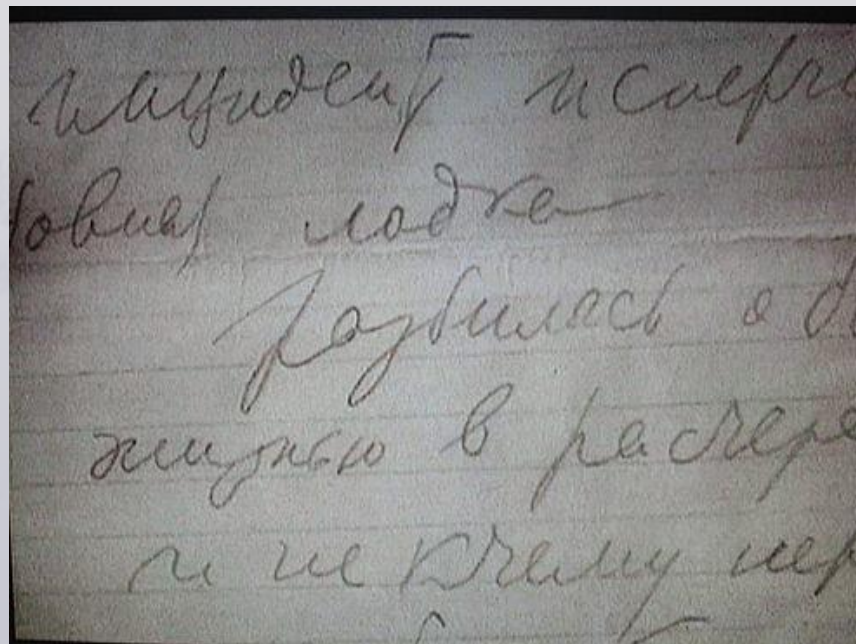 инцидент исперч
бовная лодка
разбилась о б
жизнью в расчере
и не к чему пер